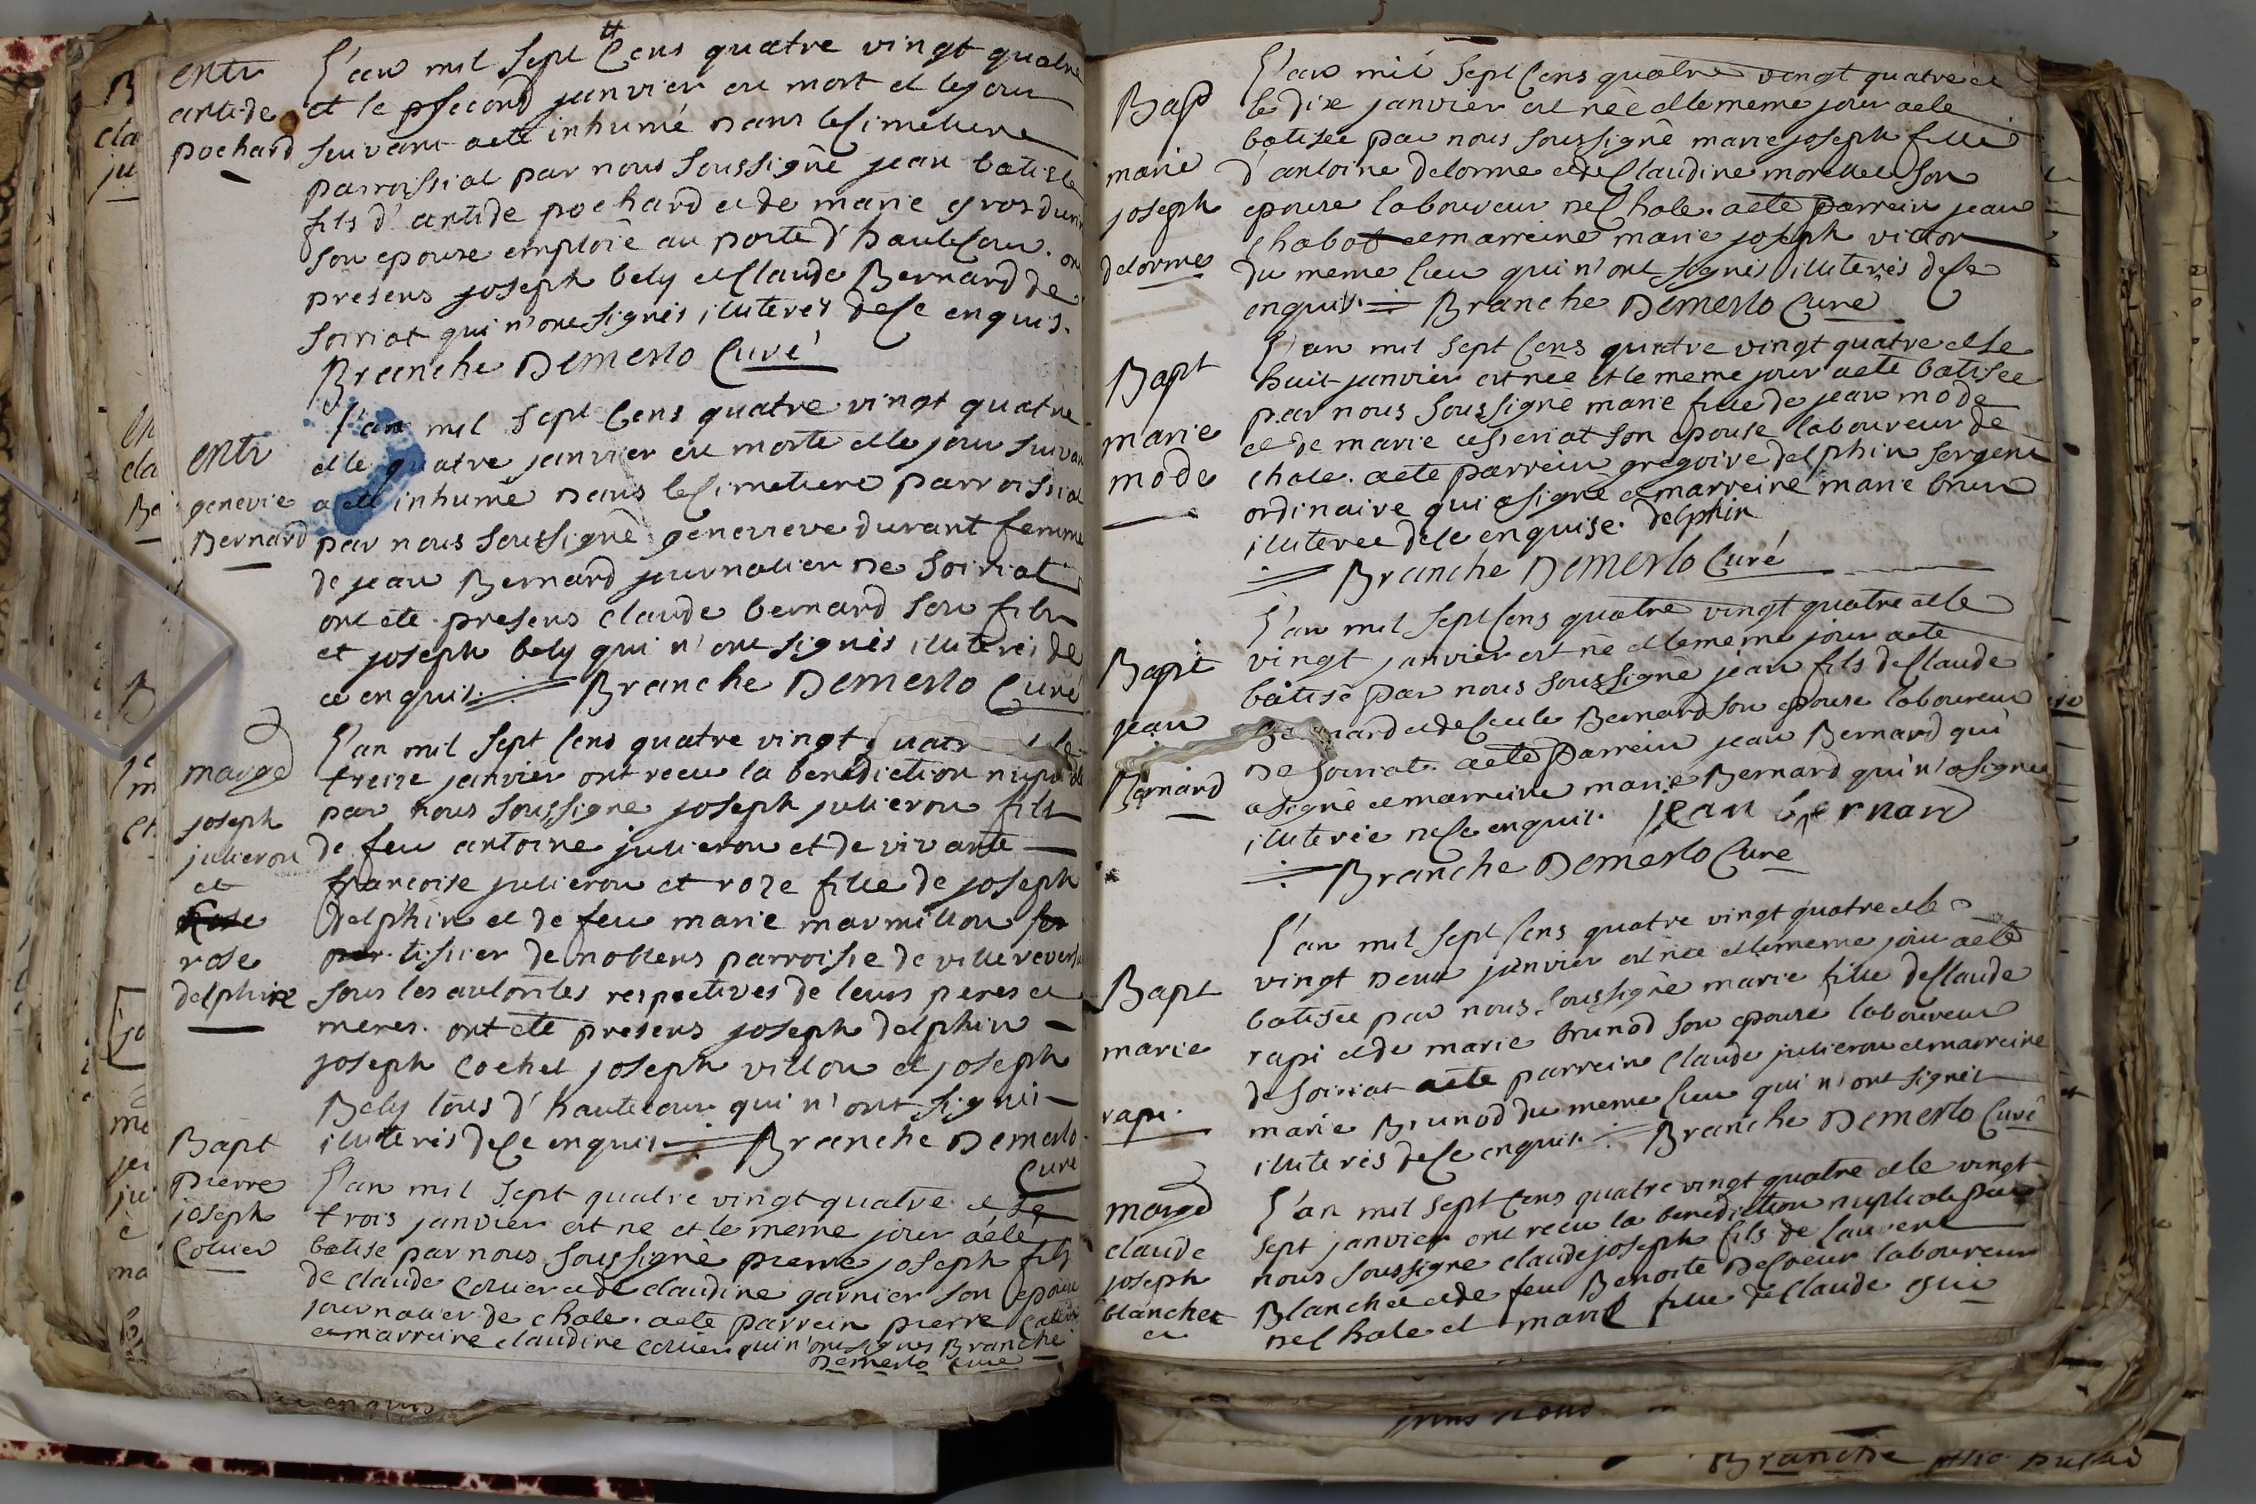 entr
artide
pochard
L'an mil sept Cens quatre vingt quatre
et le second janvier est mort et le jour
suivant aete inhumé dans leSimetiere
parroissial par nous soussigné jean batiste
fils d'artide pochard et de marie grosdu
son epouse emploié au porte d'hauteCour. on
presens joseph bely etClaude Bernard de
soiriat qui n'ont signés illiterés deCe enquis.
Branche Demerlo Curé
entr
genevie
Bernard
L'an mil sept Cens quatre vingt quatre
et le quatre janvier est morte et le jour suivan
a ete inhumé dans leSimetiere parroissial
par nous soussigné genevieve durant femme
de jean Bernard journalier de Soiriat
ont ete presens claude bernard son fils
et joseph bely qui n'ont signés illiterés de
ce enquis. Branche Demerlo Curé
marge
joseph
julieron
et
rose
delphin
L'an mil sept Cens quatre vingt quatr et le
treize janvier ont recu la benediction nuptiale
par nous soussigné joseph julieron fils
de feu antoine julieron et de vivante
francoise julieron et roze fille de joseph
delphin et de feu marie marmillon
tissier de nollens parroisse de villerevers
sous les autorites respectives de leurs peres et
meres. ont ete presens joseph delphin
joseph Cochet joseph villon et joseph
Bely tous d'hautecour qui n'ont signés
illiterés deCe enquis Branche Demerlo
Curé
Bapt
pierre
joseph
Colier
L'an mil sept quatre vingt quatre et le
trois janvier est né et le meme jour aété
batisé par nous soussigné pierre joseph fils
de claude Colier et de claudine garnier son epouse
journalier de chole. aete parrein pierre
et marreine claudine colier qui n'ont signés Branche
Demerlo Curé
Bap
marie
joseph
delorme
L'an mil sept Cens quatre vingt quatre et
le dix janvier est née et le meme jour aete
batisée par nous soussigné marie joseph fille
d'antoine delorme et deClaudine morellet son
epouse laboureur deChole. aete parrein jean
Chabot et marreine marie joseph victor
du meme lieu qui n'ont signés illiterés deCe
enquis. Branche Demerlo Curé
Bapt
marie
mode
L'an mil sept Cens quatre vingt quatre et le
huit janvier est née et le meme jour aeté batisée
par nous soussigné marie fille de jean mode
et de marie cesseriat son epouse laboureur de
chole. aete parrein gregoire delphin sergent
ordinaire qui asigné et marreine marie brun
illiterée deCe enquise. delphin
Branche Demerlo Curé
Bapt
jean
Bernard
L'an mil sept Cens quatre vingt quatre et le
vingt janvier est né et le meme jour aete
batisé par nous soussigné jean fils deClaude
Bernard et de Bernard son epouse laboureur
de soiriat. aete parrein jean Bernard qui
asigné et marreine marie Bernard qui n'a signé
illiterée deCe enquis. jean bernard
Branche Demerlo Curé
Bapt
marie
rapi.
L'an mil sept Cens quatre vingt quatre et le
vingt deux janvier est née et le meme jour aeté
batisée par nous soussigné marie fille deClaude
rapi et de marie brunod son epouse laboureur
de soiriat aete parrein Claude julieron et marreine
marie Brunod du meme lieu qui n'ont signés
illiterés deCe enquis. Branche Demerlo Curé
marge
claude
joseph
blanchet
et
L'an mil sept Cens quatre vingt quatre et le vingt
sept janvier ont recu la benediction nuptiale par
nous soussigné claude joseph fils de laurent
Blanchet et de feu Benoite deCoeur laboureur
deChole et marie fille deClaude
ce enquis
Branche